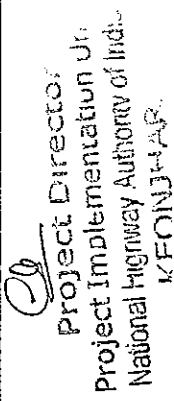 Project Director
Project Implementation Un
National Highway Authority of Indi
KEONJHAR